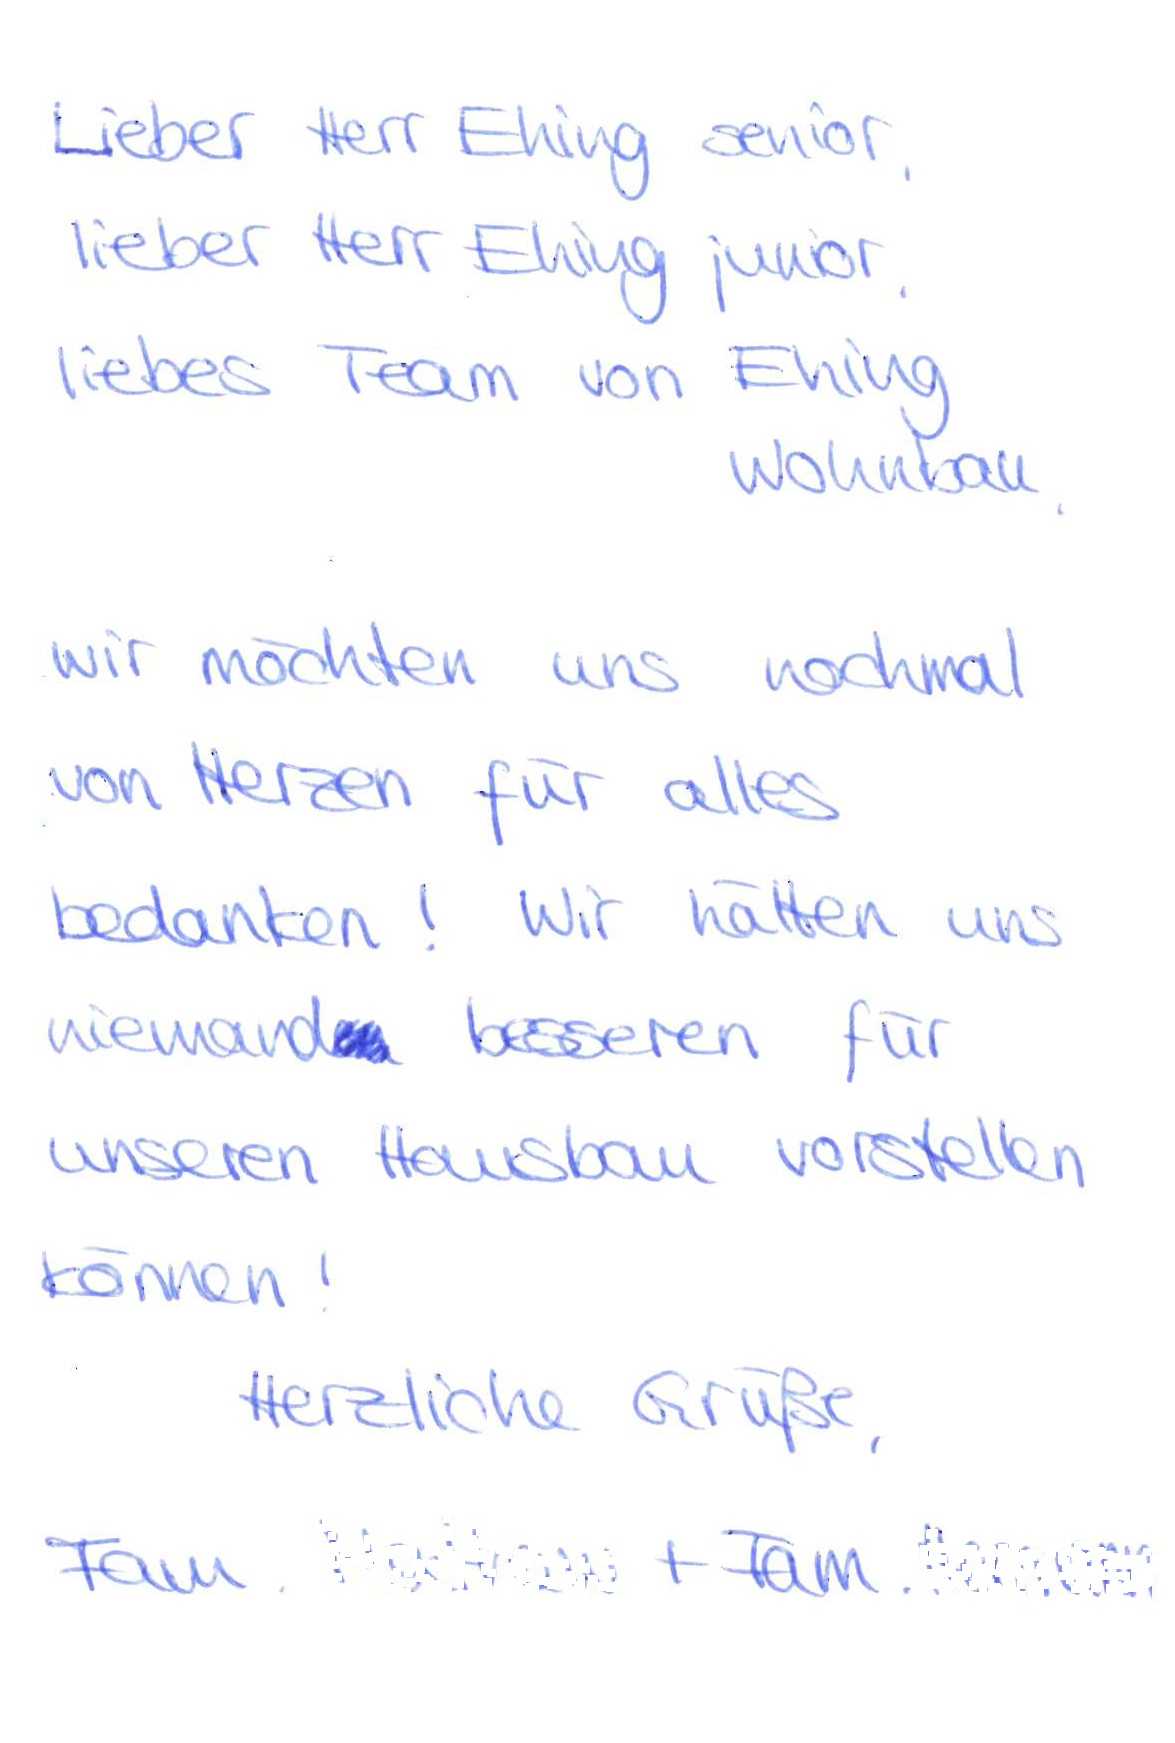 Lieber Herr Ehing senior,
lieber Herr Ehing junior,
liebes Team von Ehing
Wohnbau,
wir möchten uns nochmal
von Herzen für alles
bedanken! Wir hätten uns
niemand besseren für
unseren Hausbau vorstellen
können!
Herzliche Grüße,
Fam. + Fam.